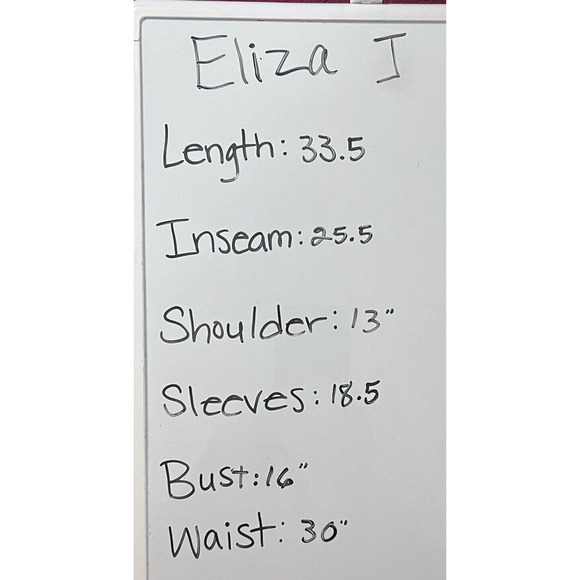 Eliza J
Length: 33.5
Inseam: 25.5
Shoulder: 13"
Sleeves: 18.5
Bust: 16"
Waist: 30"